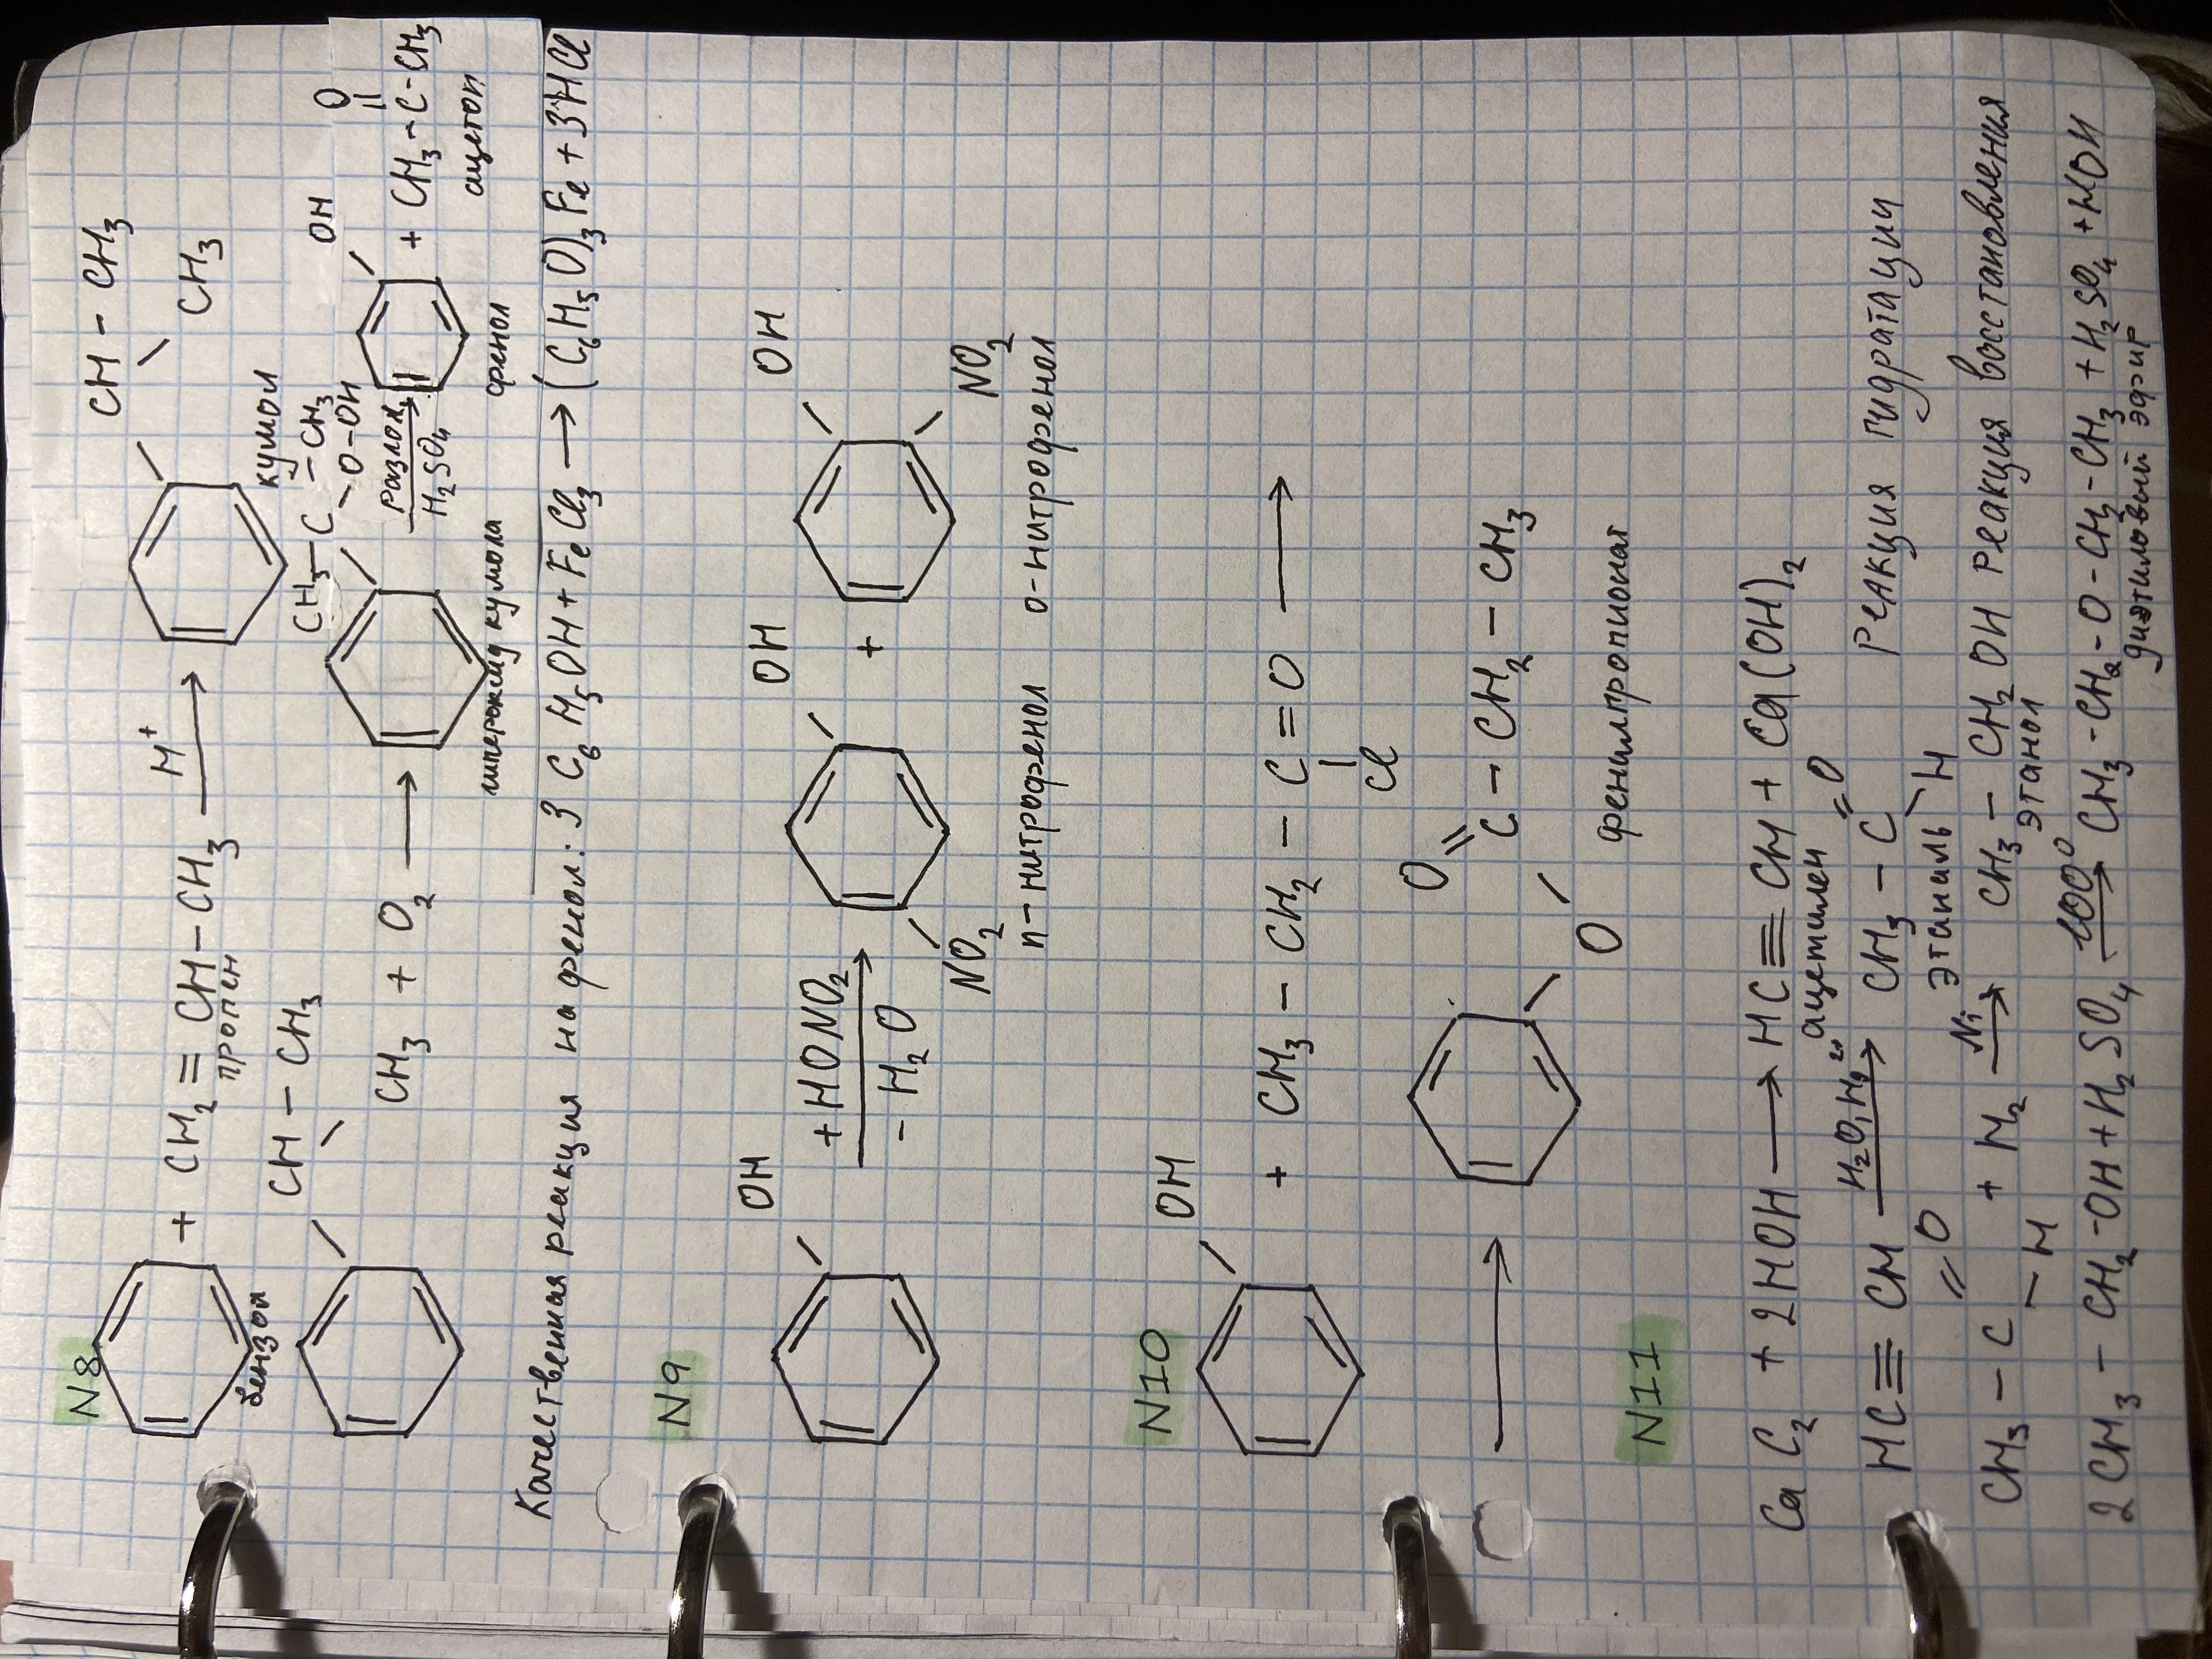 N8
CH - CH₃
CH₃
+ CH₂ = CH - CH₃ H⁺ →
пропен
бензол
кумол
CH - CH₃
CH₃ + O₂ →
CH₃ - C - CH₃
- O - OH
гипероксид кумола
разлож. →
H₂SO₄
OH
фенол
O
=
+ CH₃ - C - CH₃
ацетон
Качественная реакция на фенол: 3 C₆H₅OH + FeCl₃ → (C₆H₅O)₃Fe + 3HCl
N9
OH + HONO₂ → OH + OH
- H₂O
NO₂ NO₂
п-нитрофенол о-нитрофенол
N10
OH
+ CH₃ - CH₂ - C = O →
Cl
→ O
O - C - CH₂ - CH₃
фенилпропионат
N11
CaC₂ + 2HOH → HC ≡ CH + Ca(OH)₂
ацетилен
HC ≡ CH H₂O, Hg²⁺ → CH₃ - C = O Реакция гидратации
H
этаналь
CH₃ - C = O + H₂ Ni → CH₃ - CH₂OH Реакция восстановления
- H
этанол
2CH₃ - CH₂ - OH + H₂SO₄ 100° → CH₃ - CH₂ - O - CH₂ - CH₃ + H₂SO₄ + HOH
диэтиловый эфир